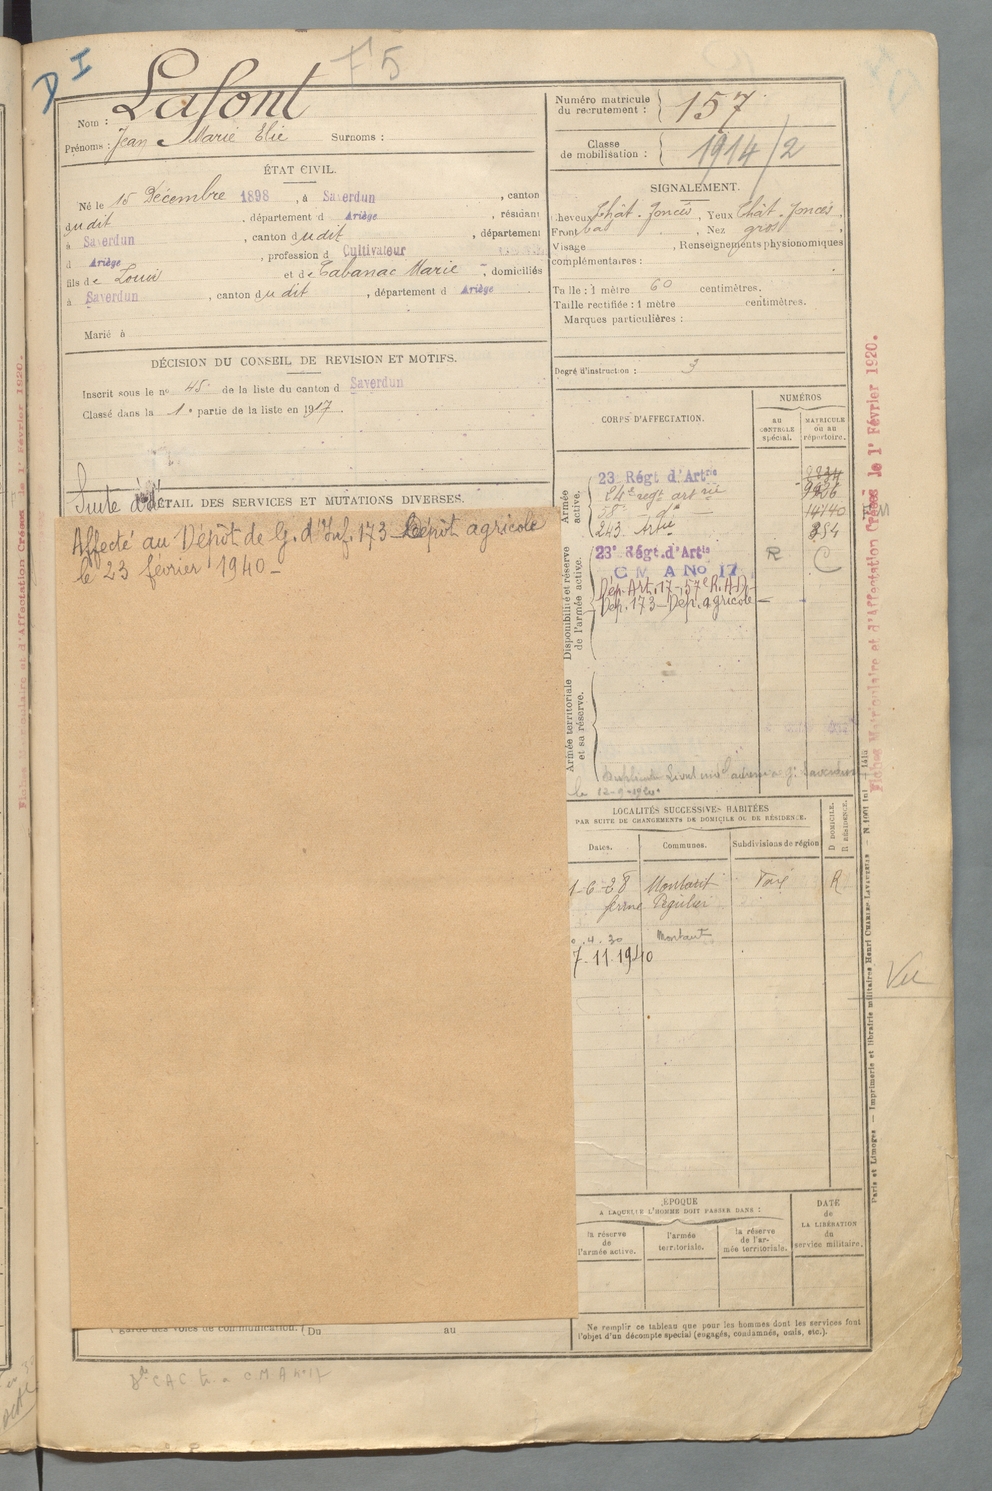 D I
F 5
Nom : Lafont
Prénoms : Jean Marie Elie Surnoms :
ÉTAT CIVIL.
Né le 15 Décembre 1898, à Saverdun, canton
dudit, département d Ariège, résidant
à Saverdun, canton dudit, département
d Ariège, profession d Cultivateur
fils de Louis et de Cabanac Marie, domiciliés
à Saverdun, canton dudit, département d Ariège
Marié à
DÉCISION DU CONSEIL DE REVISION ET MOTIFS.
Inscrit sous le n° 45 de la liste du canton d Saverdun
Classé dans la 1e partie de la liste en 1917.
Suite
DÉTAIL DES SERVICES ET MUTATIONS DIVERSES.
Affecté au Dépôt de G. d'Inf. 173 - Dépôt agricole
le 23 février 1940 -
garde des voies de communication. ( Du au
Numéro matricule
du recrutement : 157
Classe
de mobilisation : 1914/2
SIGNALEMENT.
Cheveux Chât. foncés, Yeux Chât. foncés,
Front bas, Nez gros,
Visage , Renseignements physionomiques
complémentaires :
Taille : 1 mètre 60 centimètres.
Taille rectifiée : 1 mètre centimètres.
Marques particulières :
Degré d'instruction : 3
CORPS D'AFFECTATION.
NUMÉROS
AU CONTROLE spécial.
MATRICULE ou au répertoire.
Armée active.
23 Régt d'Artrie
24e regt artrie
14140
243 Artie 354
Disponibilité et réserve de l'armée active.
23e Régt. d'Artie R C
C M A No 17
Dép. Art. 17 - 57e R.A.D.
Dép. 173 - Dép. agricole -
Armée territoriale et sa réserve.
le 12-9-1920
LOCALITÉS SUCCESSIVES HABITÉES
PAR SUITE DE CHANGEMENTS DE DOMICILE OU DE RÉSIDENCE.
Dates. Communes. Subdivisions de région D DOMICILE. R RÉSIDENCE.
1-6-28 Montaut Foix R
ferme
4.30 Montaut
7.11.1940
ÉPOQUE
A LAQUELLE L'HOMME DOIT PASSER DANS :
la réserve de l'armée active.
l'armée territoriale.
la réserve de l'armée territoriale.
DATE de LA LIBÉRATION du service militaire.
Ne remplir ce tableau que pour les hommes dont les services font
l'objet d'un décompte spécial (engagés, condamnés, omis, etc.).
Fiches Matriculaire et d'Affectation Créées le 1er Février 1920.
Paris et Limoges. — Imprimerie et librairie militaires Henri CHARLES-LAVAUZELLE
Vu